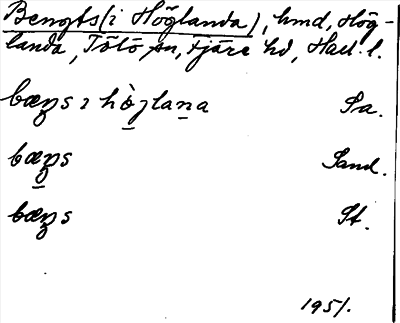 Bengts (i Höglanda), hmd, Hög-
landa, Tölö sn, Fjäre hd, Hall. l.
bæŋs ı hòglana Sa.
bæŋs Sand.
bæŋs St.
1951.